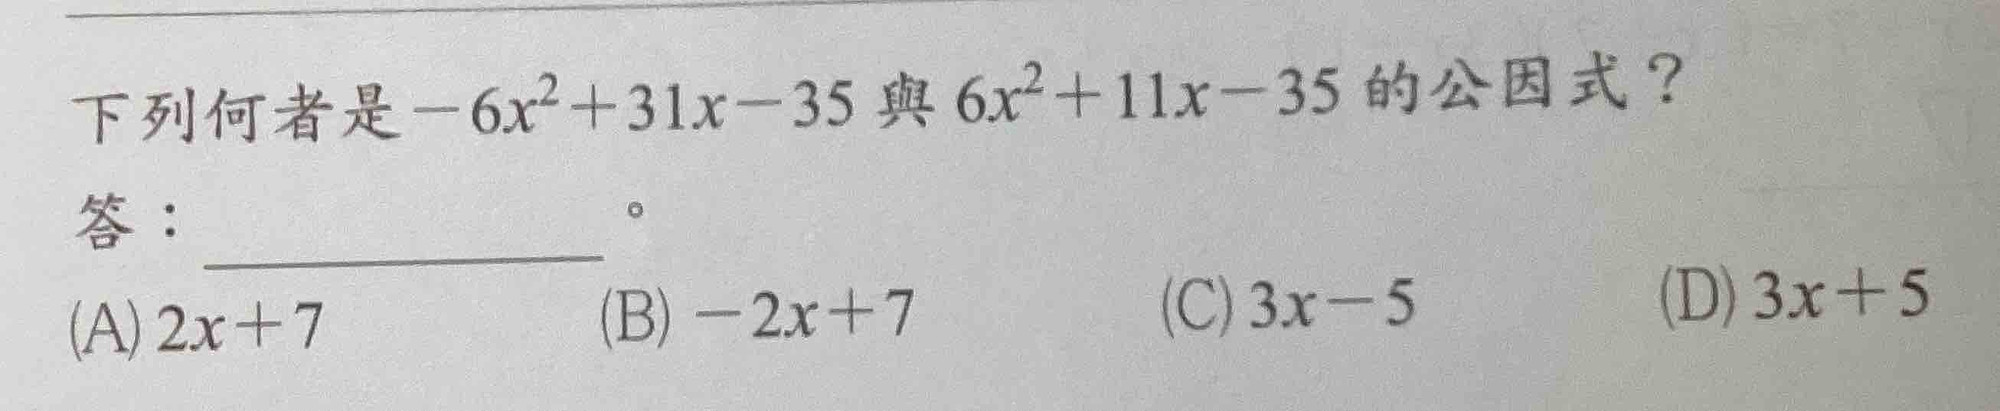 下列何者是-6x²+31x-35 與 6x²+11x-35 的公因式?
答:＿＿＿＿＿＿。
(A) 2x+7 (B) -2x+7 (C) 3x-5 (D) 3x+5